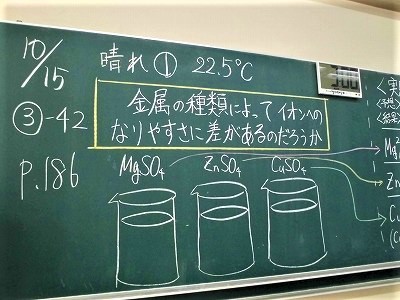 10/15
晴れ ① 22.5℃
③-42
p.186
金属の種類によってイオンへの
なりやすさに差があるのだろうか
MgSO₄ ZnSO₄ CuSO₄
3:00
<実
<結果
Mg²
Zn
Cu